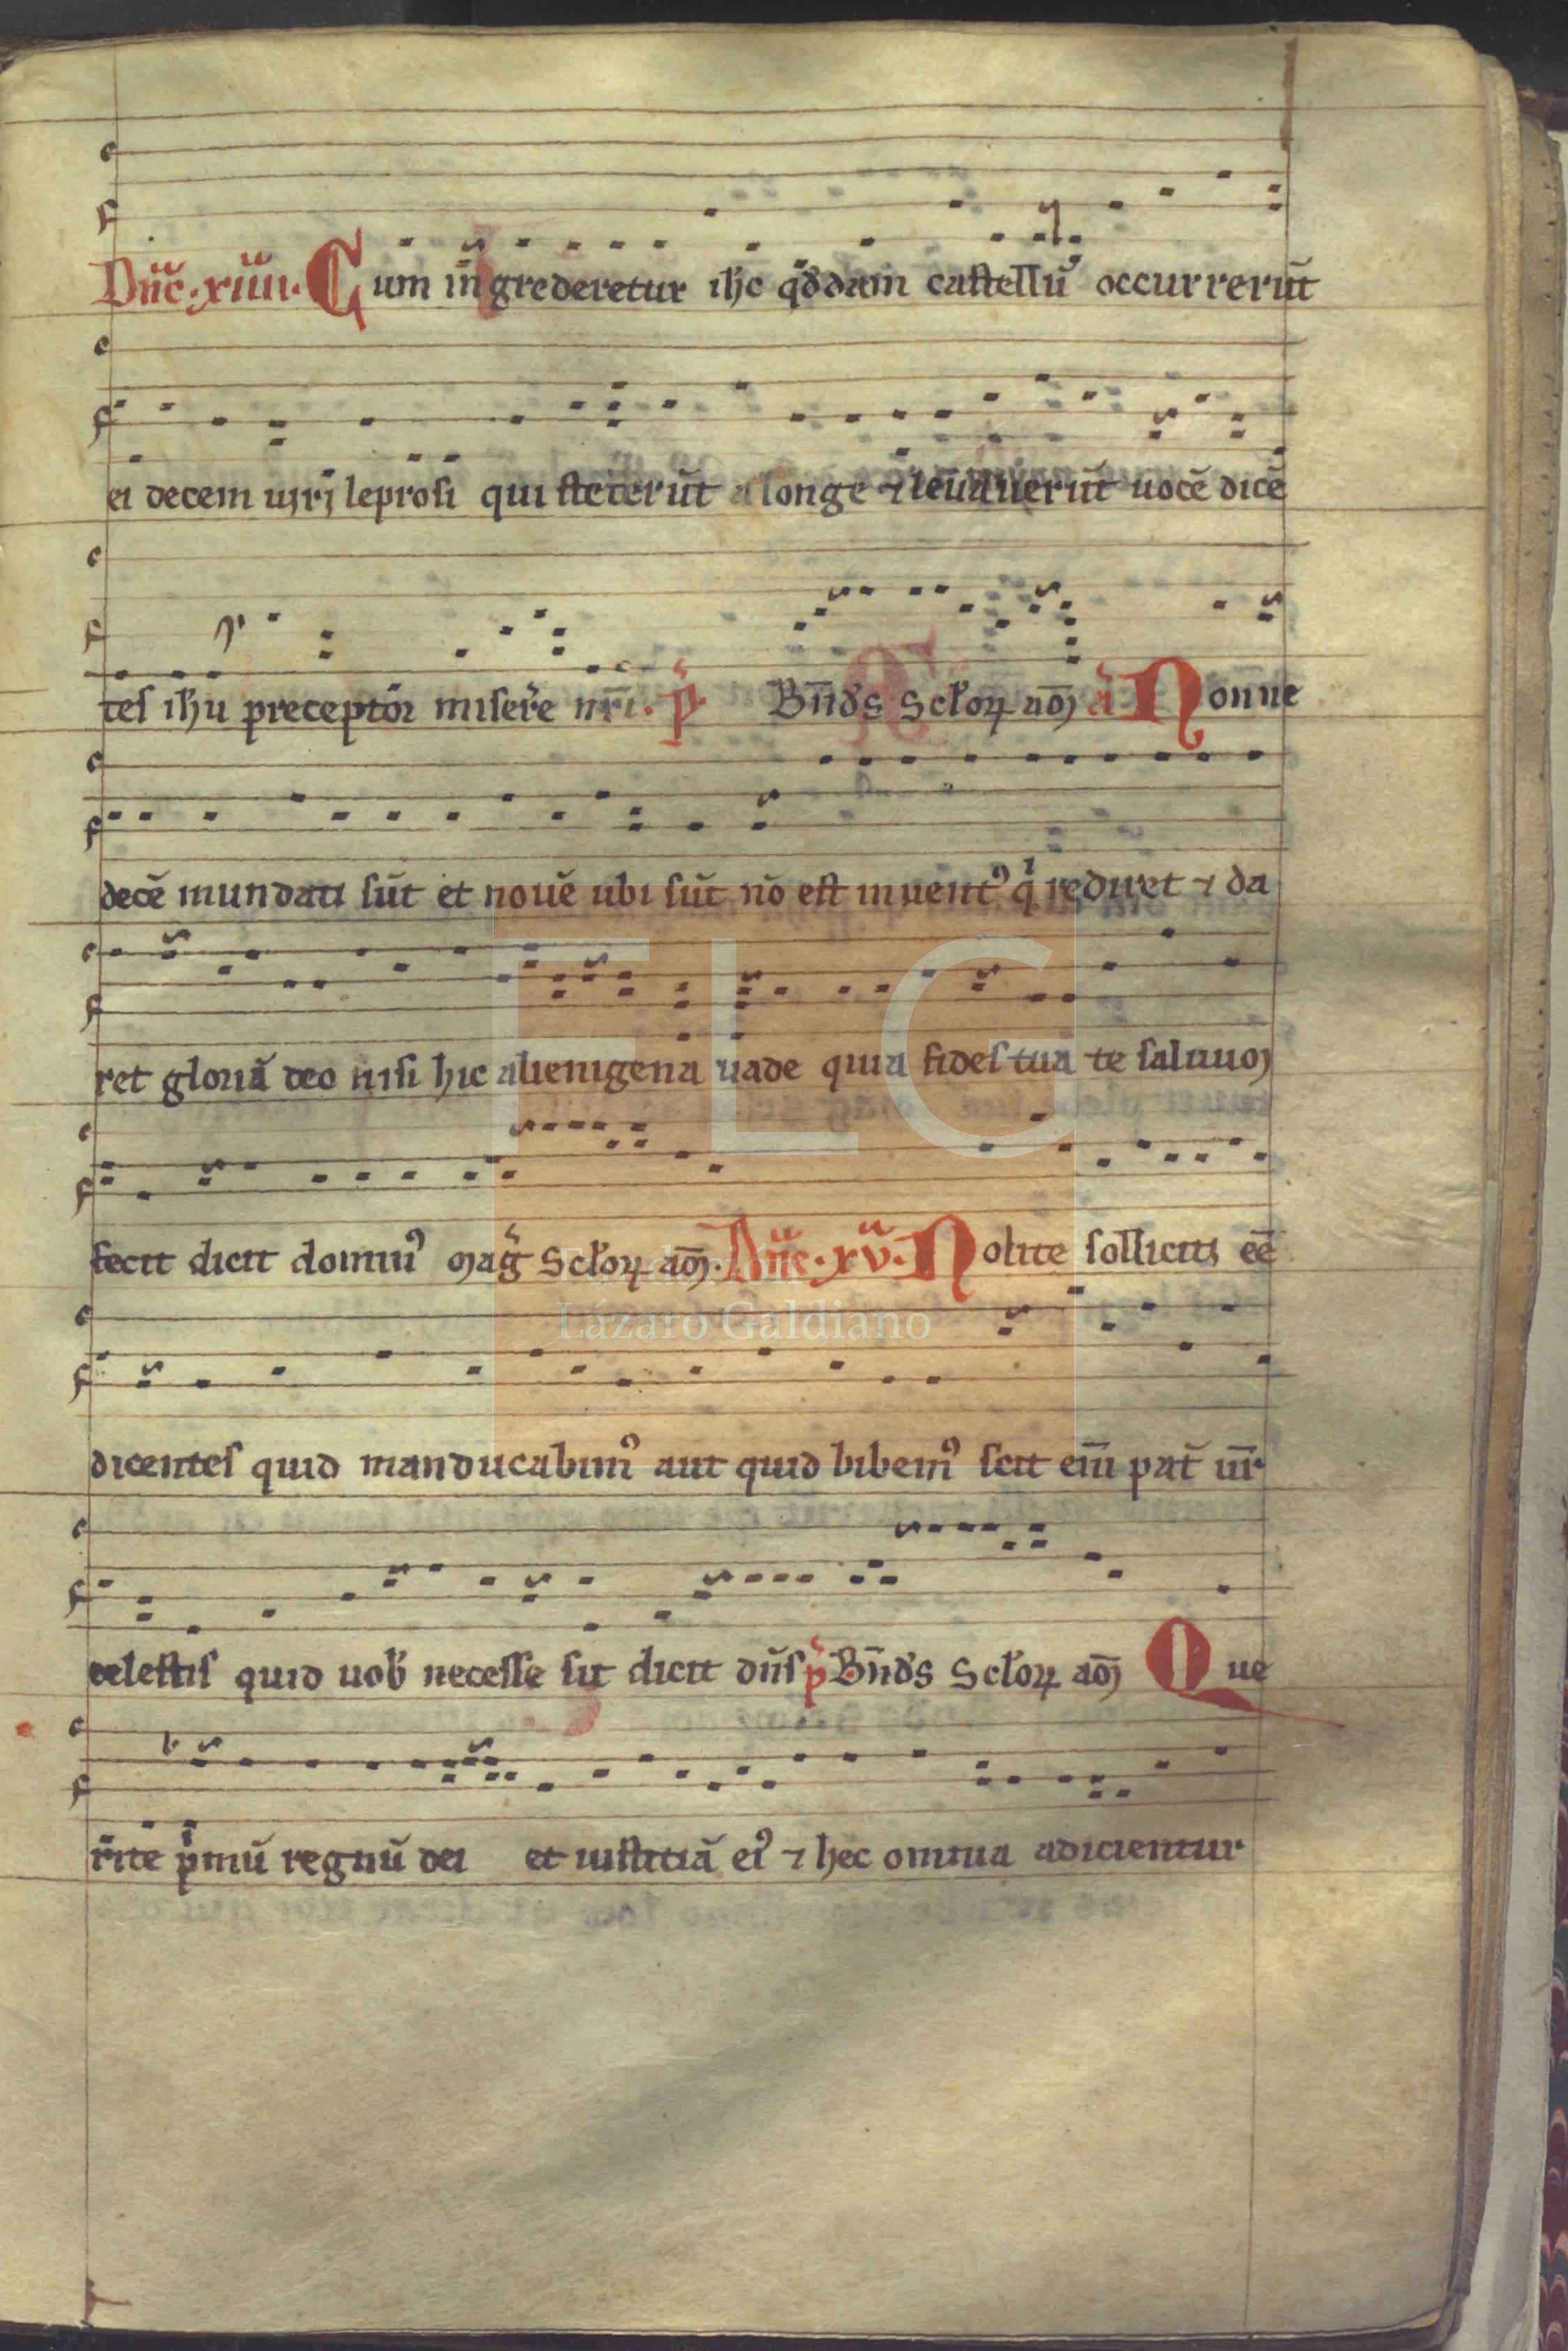 Dñic·xiiii· Cum ingrederetur ihc q̊ddam castellū occurrerūt
ei decem uiri leprosi qui steterūt a longe ⁊ leuauerūt uocē dicē
tes ihu preceptor miserēre nr̄i. p̄. Bn̄ds sclorꝝ am̄ a Nonne
decē mundati sūt et nouē ubi sūt nō est inuentꝰ q̇ rediret ⁊ da
ret gloriā deo nisi hic alienigena uade quia fides tua te saluum
fecit dicit dominꝰ mag̃ sclorꝝ am̄. Dñic·xv· Nolite solliciti eē
dicentes quid manducabimꝰ aut quid bibemꝰ scit eni pat̃ ur̄
celestis quid uob̄ necesse sit dicit dn̄s p̄ Bn̄ds sclorꝝ am̄ Que
rite p̍mū regnū dei et iustitiā eiꝰ ⁊ hec omnia adicientur
FLG
Lázaro Galdiano